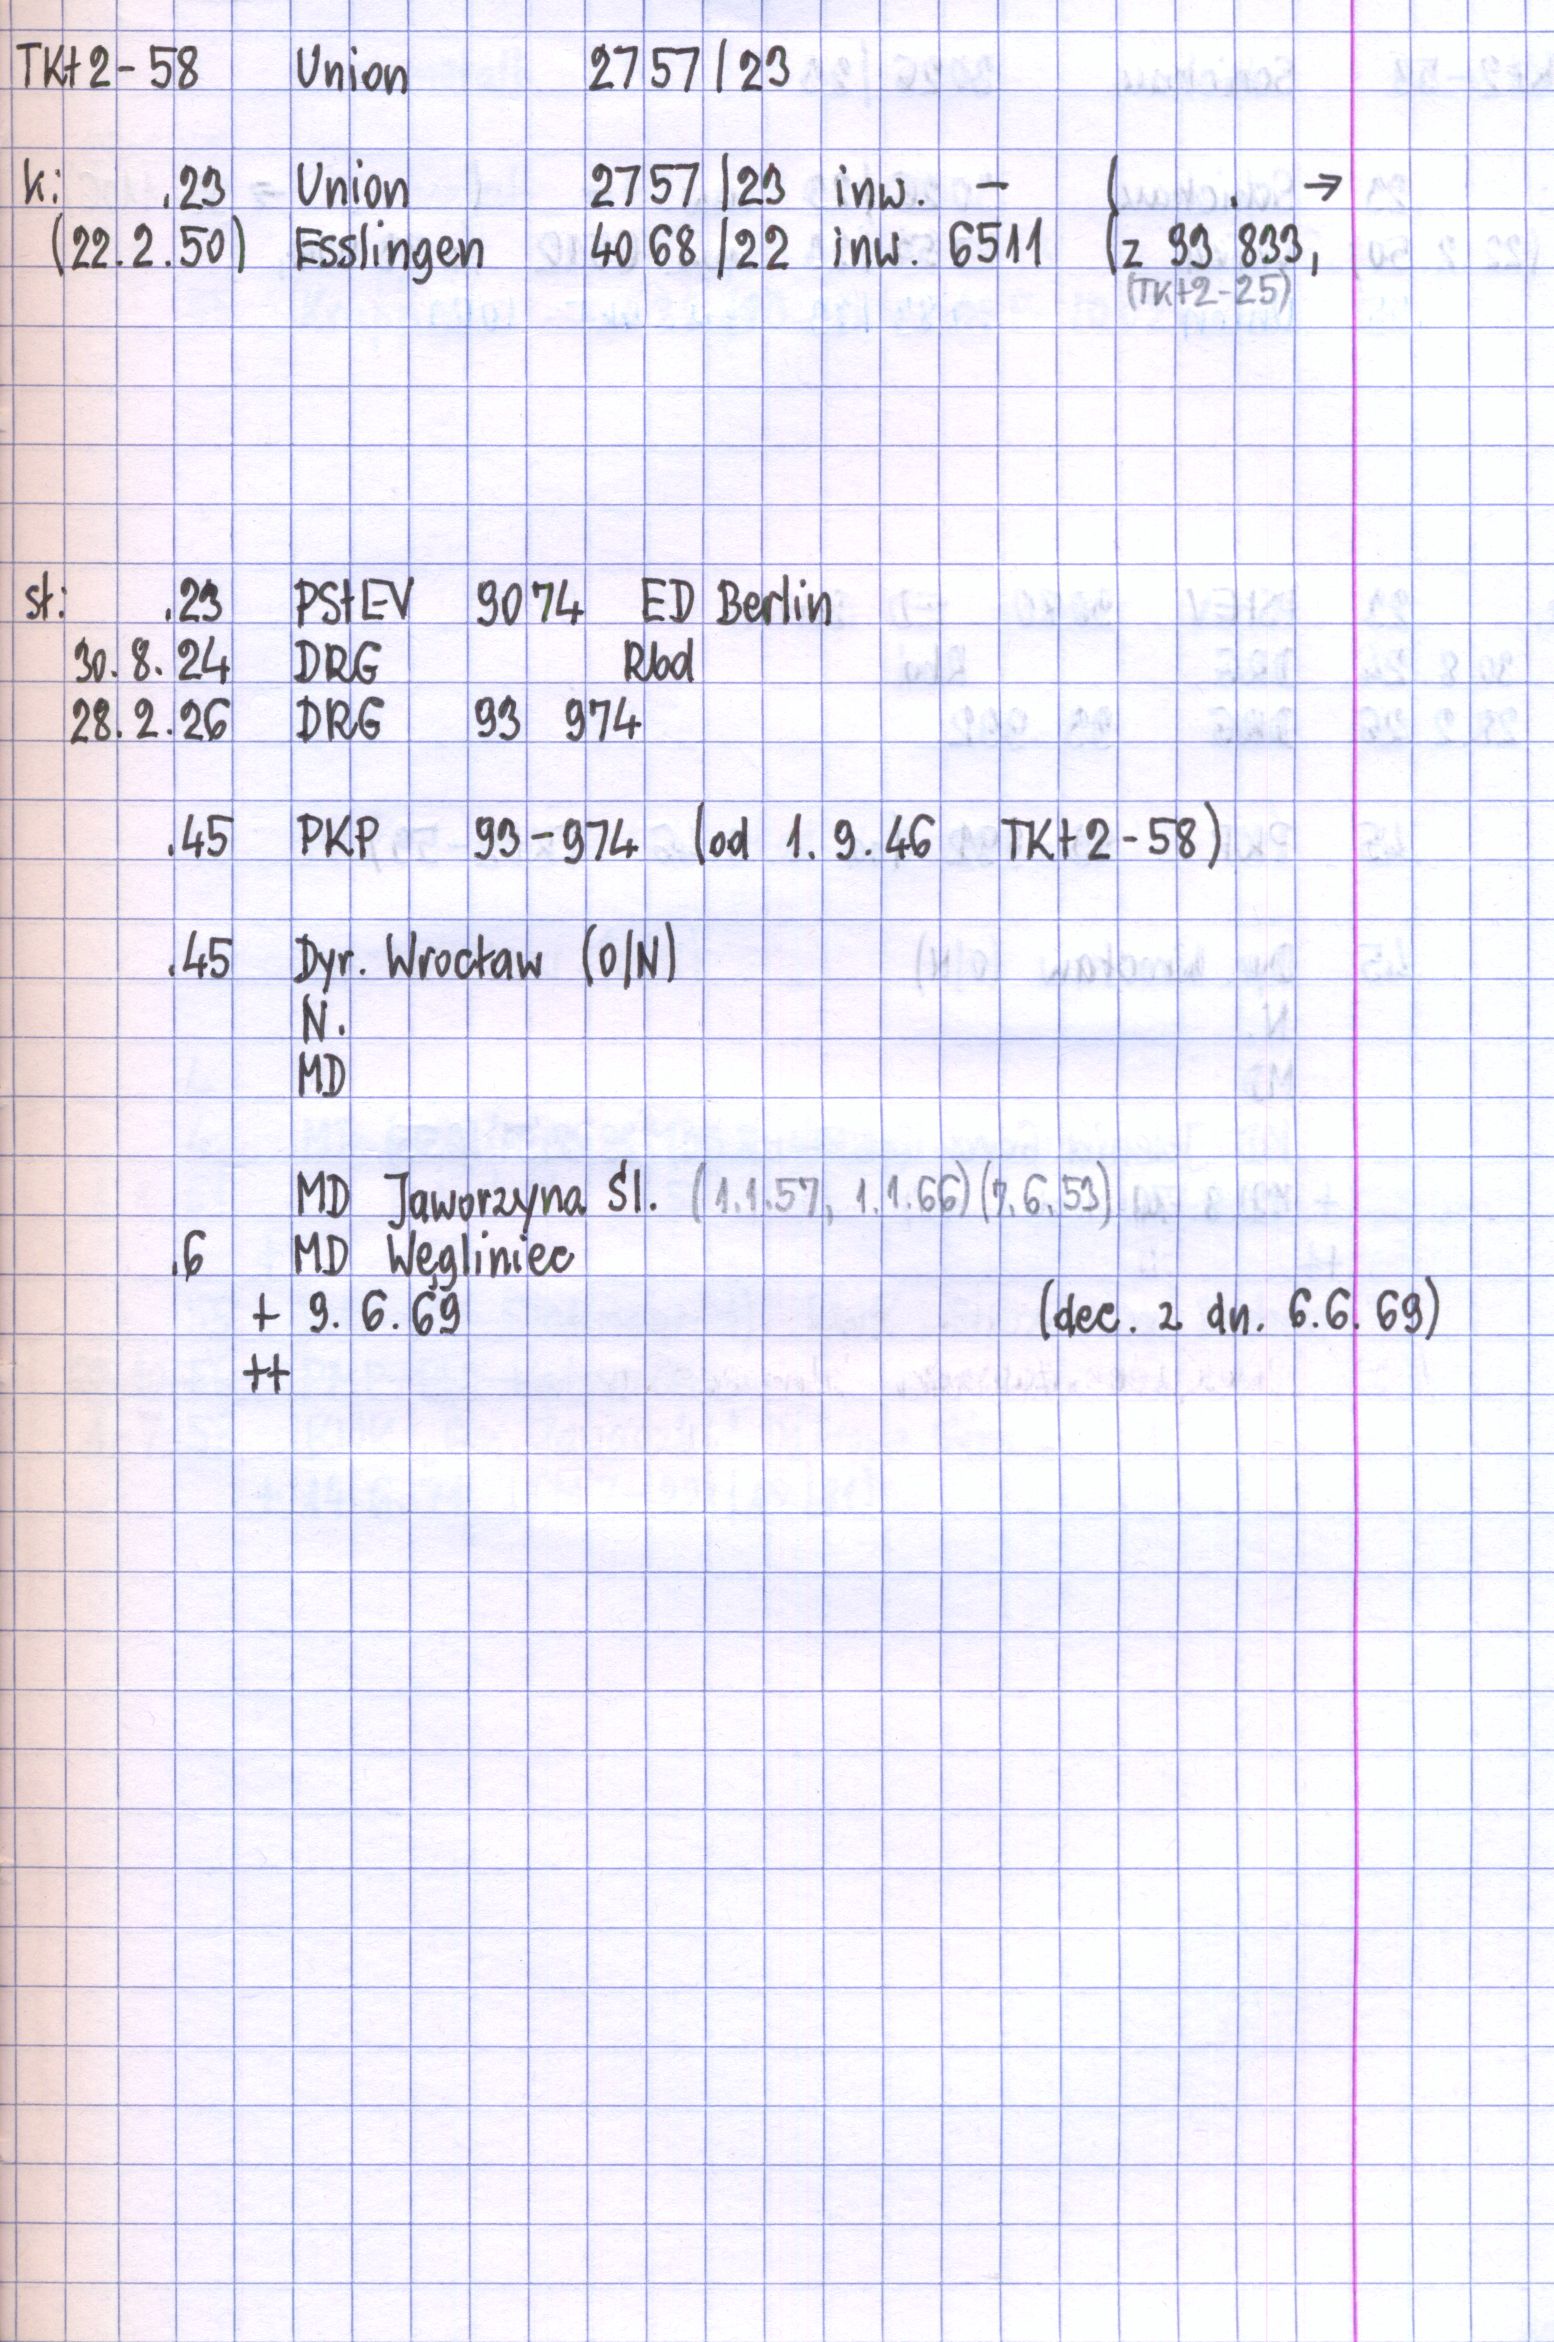 TKt2-58 Union 2757/23
k: .23 Union 2757/23 inw. – ( . →
(22.2.50) Esslingen 4068/22 inw. 6511 (z 93 833,
(TKt2-25)
st: .23 PStEV 9074 ED Berlin
30.8.24 DRG Rbd
28.2.26 DRG 93 974
.45 PKP 93-974 (od 1.9.46 TKt2-58)
.45 Dyr. Wrocław (O/N)
N.
MD
MD Jaworzyna Śl. (1.1.57, 1.1.66)(7.6.53)
.6 MD Węgliniec
+ 9.6.69 (dec. z dn. 6.6.69)
++